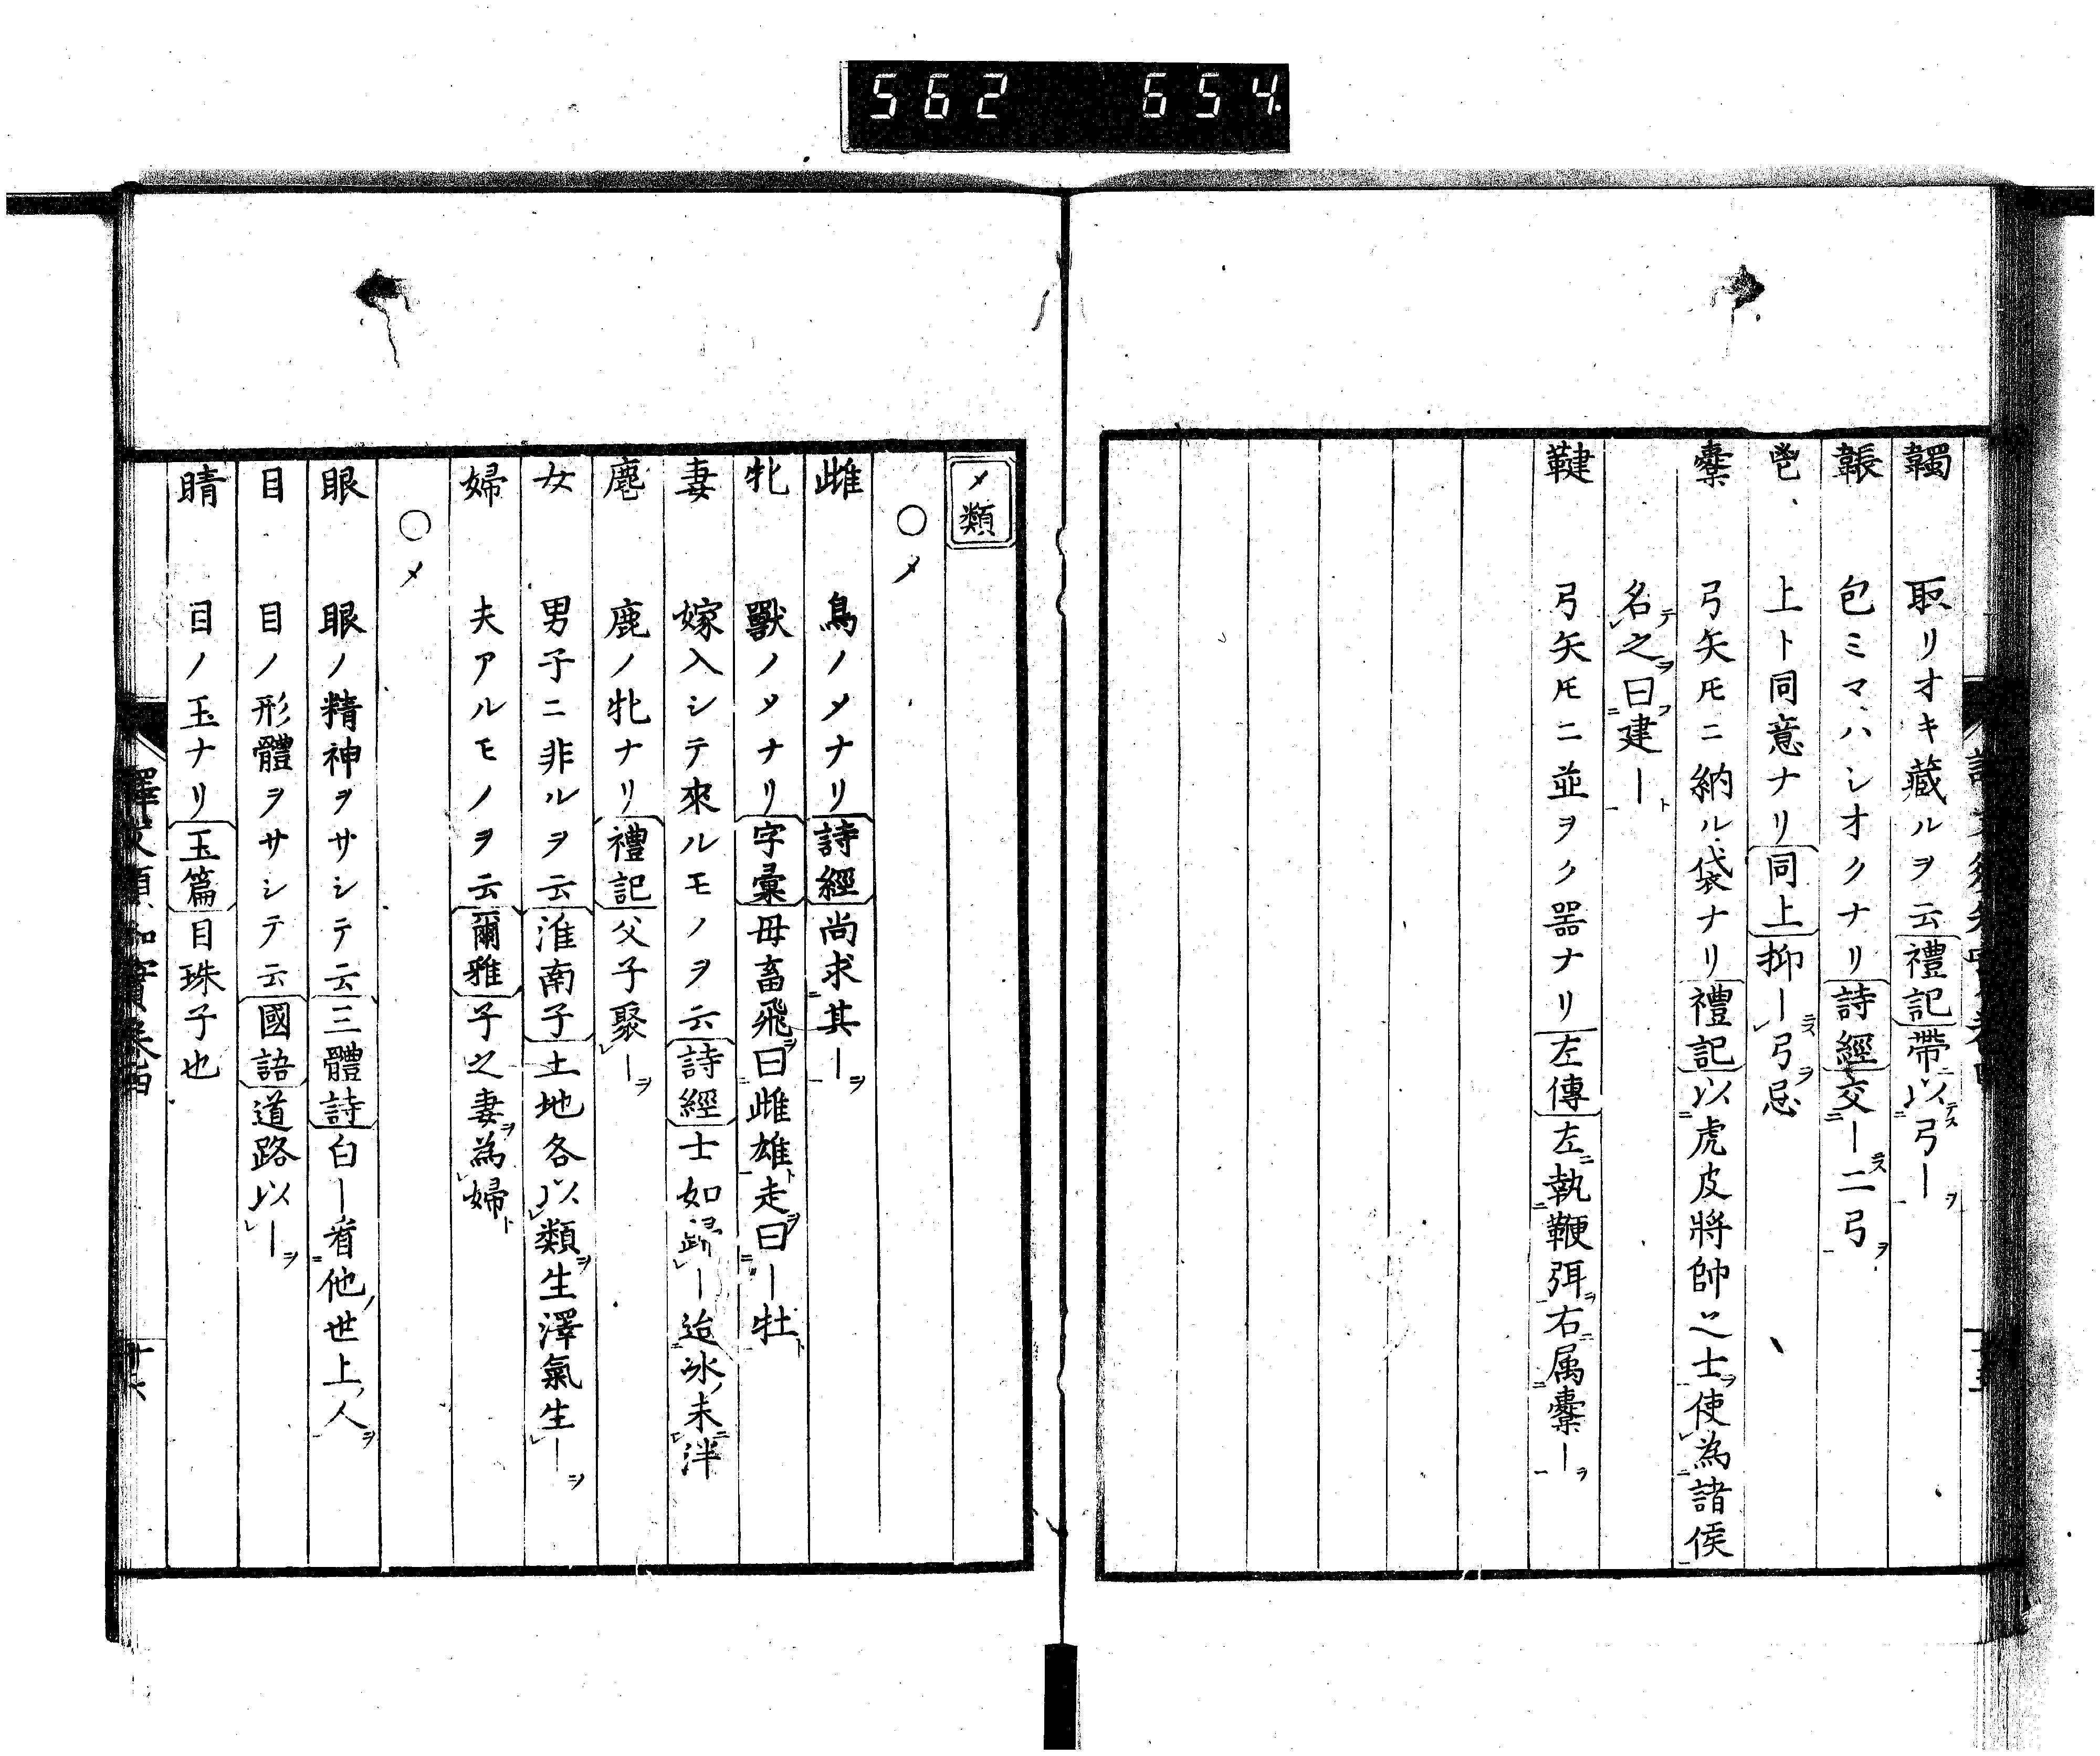 562 654
韣 取リオキ藏ルヲ云禮記帶以弓ー
韔 包ミマハシオクナリ詩經交ー二弓
鬯 上ト同意ナリ同上抑ー弓忌
櫜 弓矢𪜈ニ納ル袋ナリ禮記以虎皮將帥之士使為諸侯
名之曰建ー
鞬 弓矢𪜈ニ並ヲク器ナリ左傳左執鞭弭右属櫜ー
メ類
○メ
雌 鳥ノメナリ詩經尚求其ー
牝 獸ノメナリ字彙毋畜飛曰雌雄走曰ー牡
妻 嫁入シテ來ルモノヲ云詩經士如歸ー迨冰未泮
麀 鹿ノ牝ナリ禮記父子聚ー
女 男子ニ非ルヲ云淮南子土地各以類生澤氣生ー
婦 夫アルモノヲ云爾雅子之妻為婦
○メ
眼 眼ノ精神ヲサシテ云三體詩白ー看他世上人
目 目ノ形體ヲサシテ云國語道路以ー
睛 目ノ玉ナリ玉篇目珠子也